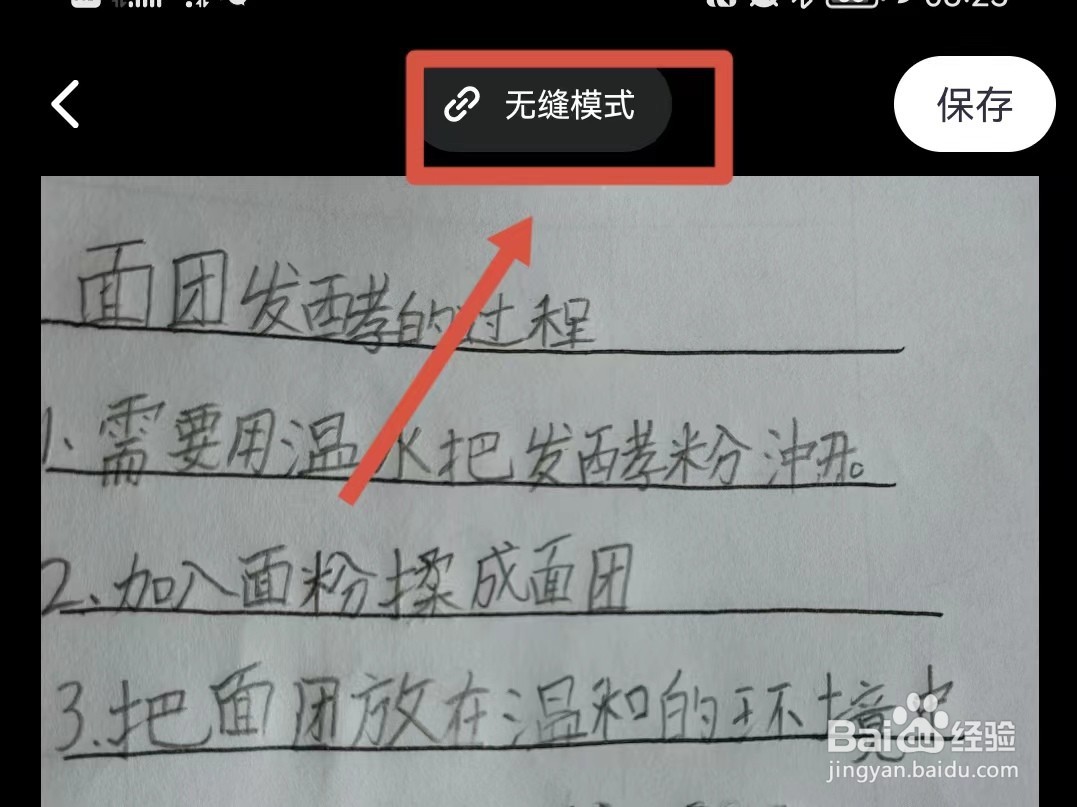 无缝模式
保存
面团发酵的过程
1、需要用温水把发酵粉冲开。
2、加入面粉揉成面团
3.把面团放在温和的环境中
Baidu经验
jingyan.baidu.com